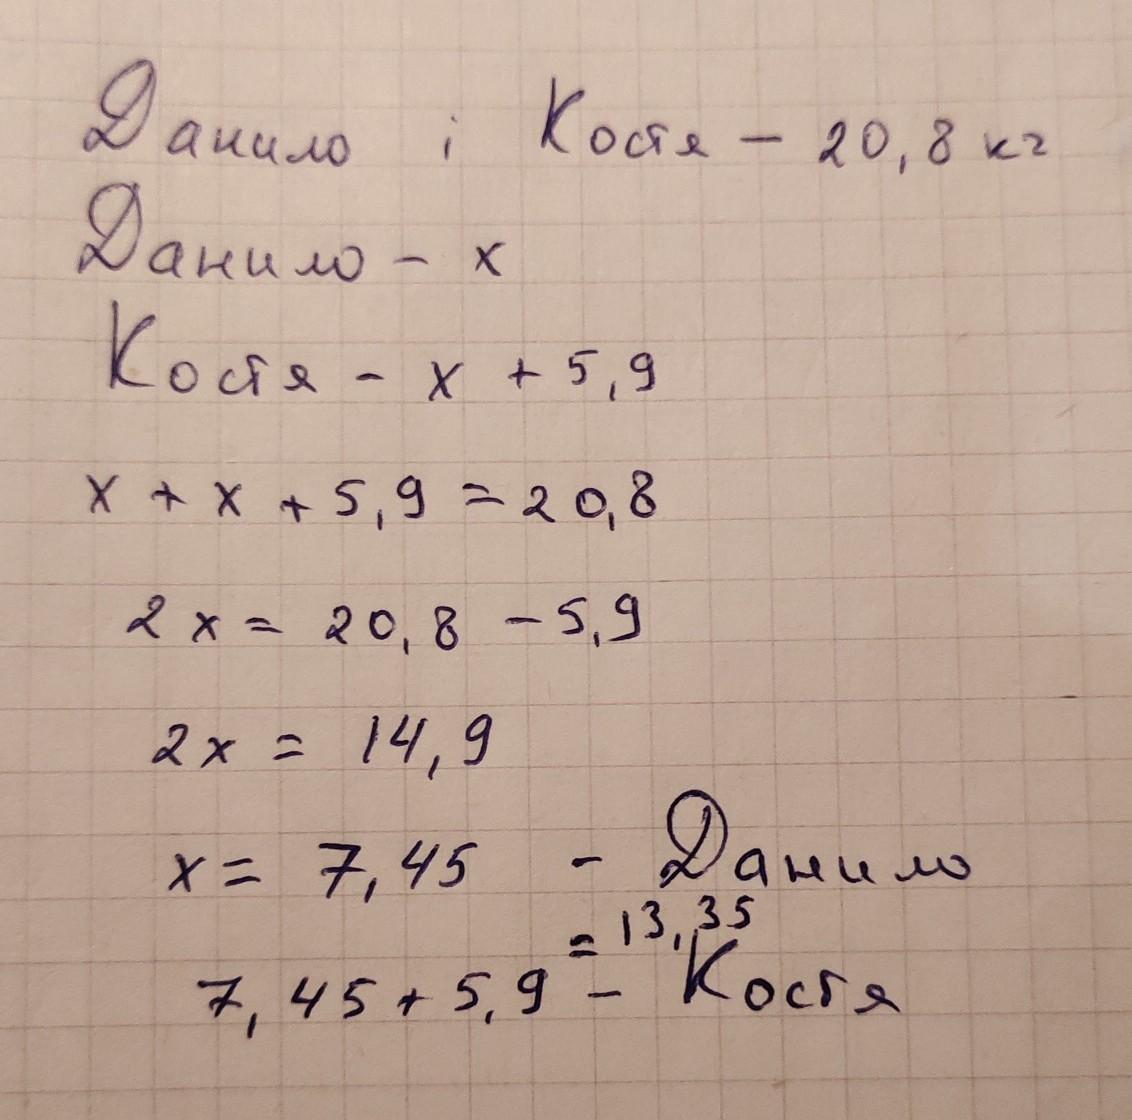 Данило і Костя – 20,8 кг
Данило – x
Костя – x + 5,9
x + x + 5,9 = 20,8
2x = 20,8 – 5,9
2x = 14,9
x = 7,45 – Данило
= 13,35
7,45 + 5,9 – Костя